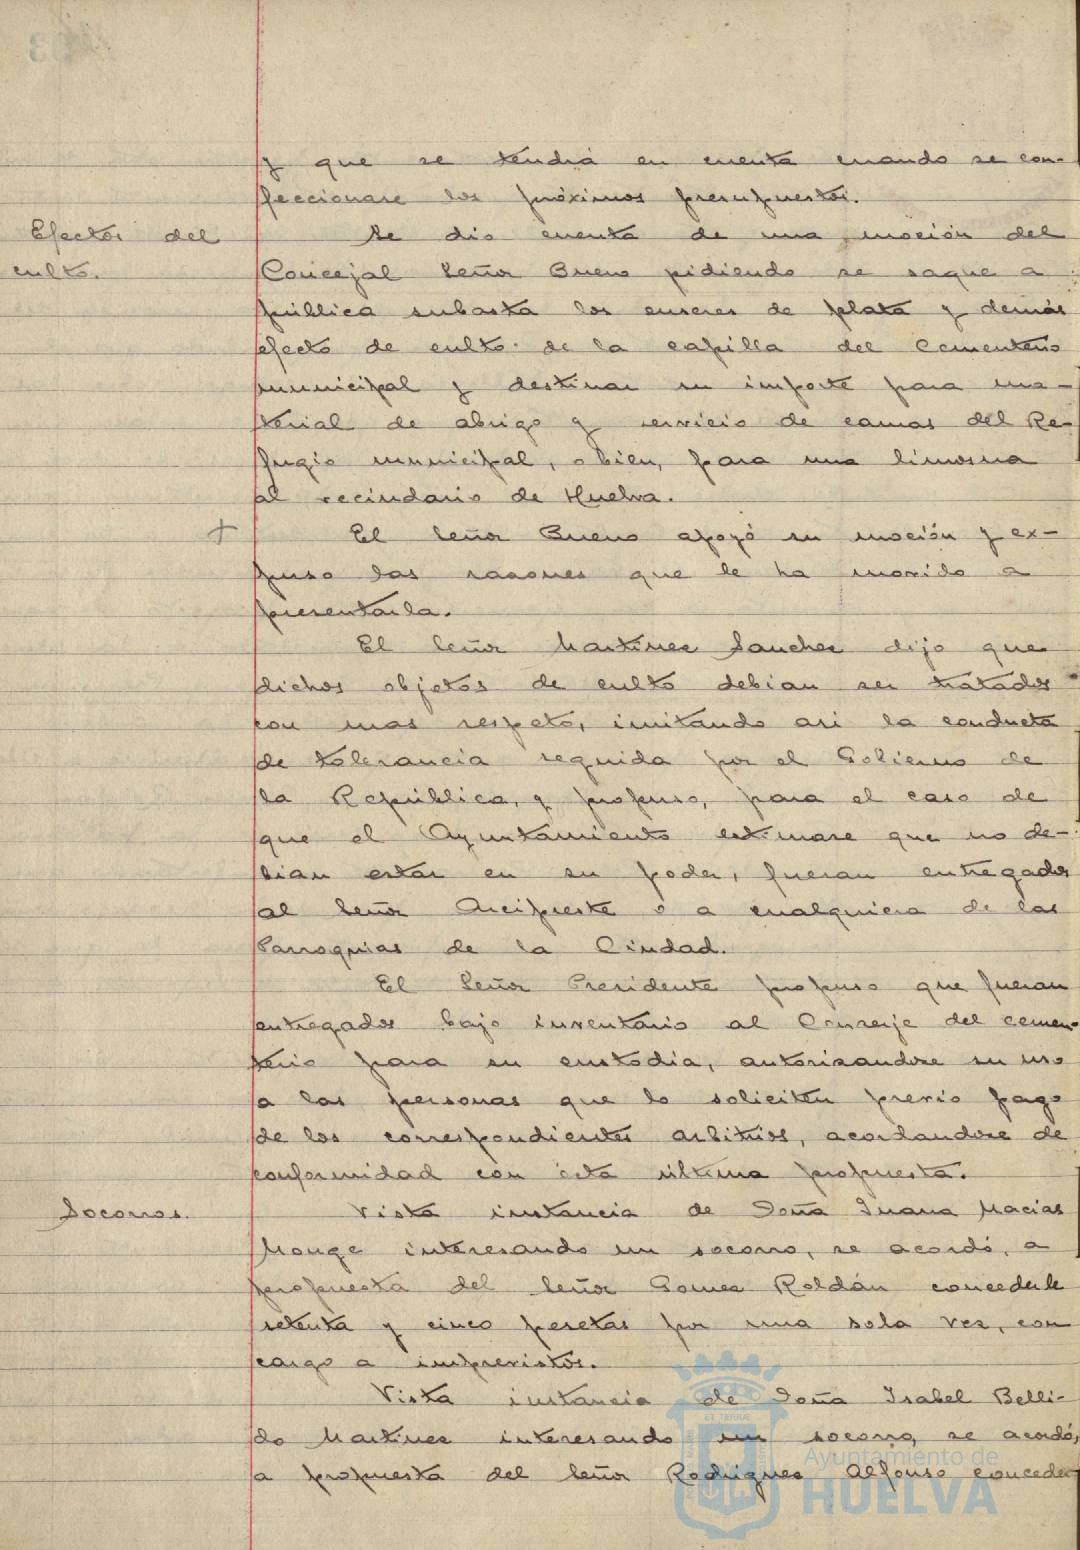 y que se tendrá en cuenta cuando se con-
feccionase los próximos presupuestos.
Efectos del
culto.
Se dió cuenta de una moción del
Concejal Señor Bueno pidiendo se saque a
pública subasta los enseres de plata y demás
efecto de culto de la capilla del Cementerio
municipal y destinar su importe para ma-
terial de abrigo y servicio de camas del Re-
fugio municipal, o bien, para una limosna
al vecindario de Huelva.
+
El Señor Bueno apoyó su moción y ex-
puso las razones que le ha movido a
presentarla.
El Señor Martinez Sanchez dijo que
dichos objetos de culto debian ser tratados
con mas respeto, imitando asi la conducta
de tolerancia seguida por el Gobierno de
la República, y propuso, para el caso de
que el Ayuntamiento estimase que no de-
bian estar en su poder, fueran entregados
al Señor Arcipreste o a cualquiera de las
Parroquias de la Ciudad.
El Señor Presidente propuso que fueran
entregados bajo inventario al Conserje del cemen-
terio para su custodia, autorizandose su uso
a las personas que lo soliciten previo pago
de los correspondientes arbitrios, acordandose de
conformidad con ésta última propuesta.
Socorros.
Vista instancia de Doña Juana Macias
Monge interesando un socorro, se acordó, a
propuesta del Señor Gomez Roldán concederle
setenta y cinco pesetas por una sola vez, con
cargo a imprevistos.
Vista instancia de Doña Isabel Belli-
do Martinez interesando un socorro, se acordó,
a propuesta del Señor Rodriguez Alfonso conceder
Ayuntamiento de
HUELVA